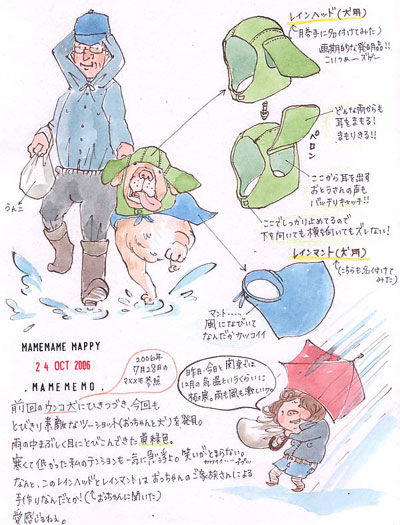 レインヘッド(犬用)
(↑勝手に名付けてみた)
画期的な発明品!!
こいつぁースゲー
どんな雨からも
耳をまもる!
まもりきる!!
ペロン
ここから耳を出す
おとうさんの声も
バッチリキャッチ!!
ここでしっかり止めてるので
下を向いても横を向いてもズレない!
レインマント(犬用)
(↑こちらも名付けて
みた)
マント……
風になびいて
なんだかカッコイイ
うんこ
MAMEMAME HAPPY
24 OCT 2006
.MAMEMEMO.
2006年
7月28日の
マメメモ参照
昨日・今日と関東では
12月の気温というくらいに
極寒。雨も風も激しい!?。
前回のウンコ犬にひきつづき、今回も
とびきり素敵なツーショット(おっちゃんと犬)を発見。
雨の中まぶしく目にとびこんできた黄緑色。
寒くて低かった私のテンションも一気に急浮上。笑いがとまらない。
なんと、このレインヘッドとレインマントはおっちゃんのご家族さんによる
手作りなんだとか!(おっちゃんに聞いた)
愛感じるねぇ。